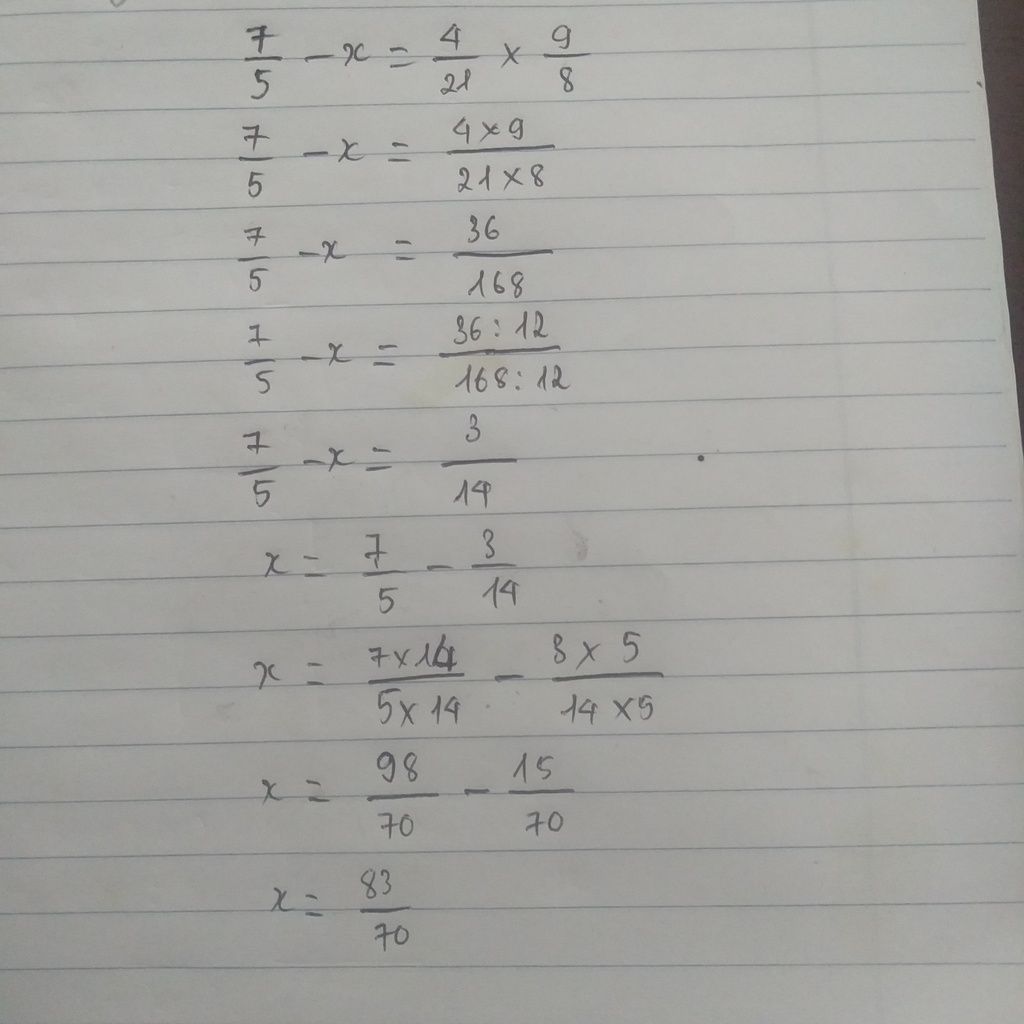 7/5 - x = 4/21 × 9/8
7/5 - x = (4×9)/(21×8)
7/5 - x = 36/168
7/5 - x = (36:12)/(168:12)
7/5 - x = 3/14
x = 7/5 - 3/14
x = (7×14)/(5×14) - (3×5)/(14×5)
x = 98/70 - 15/70
x = 83/70